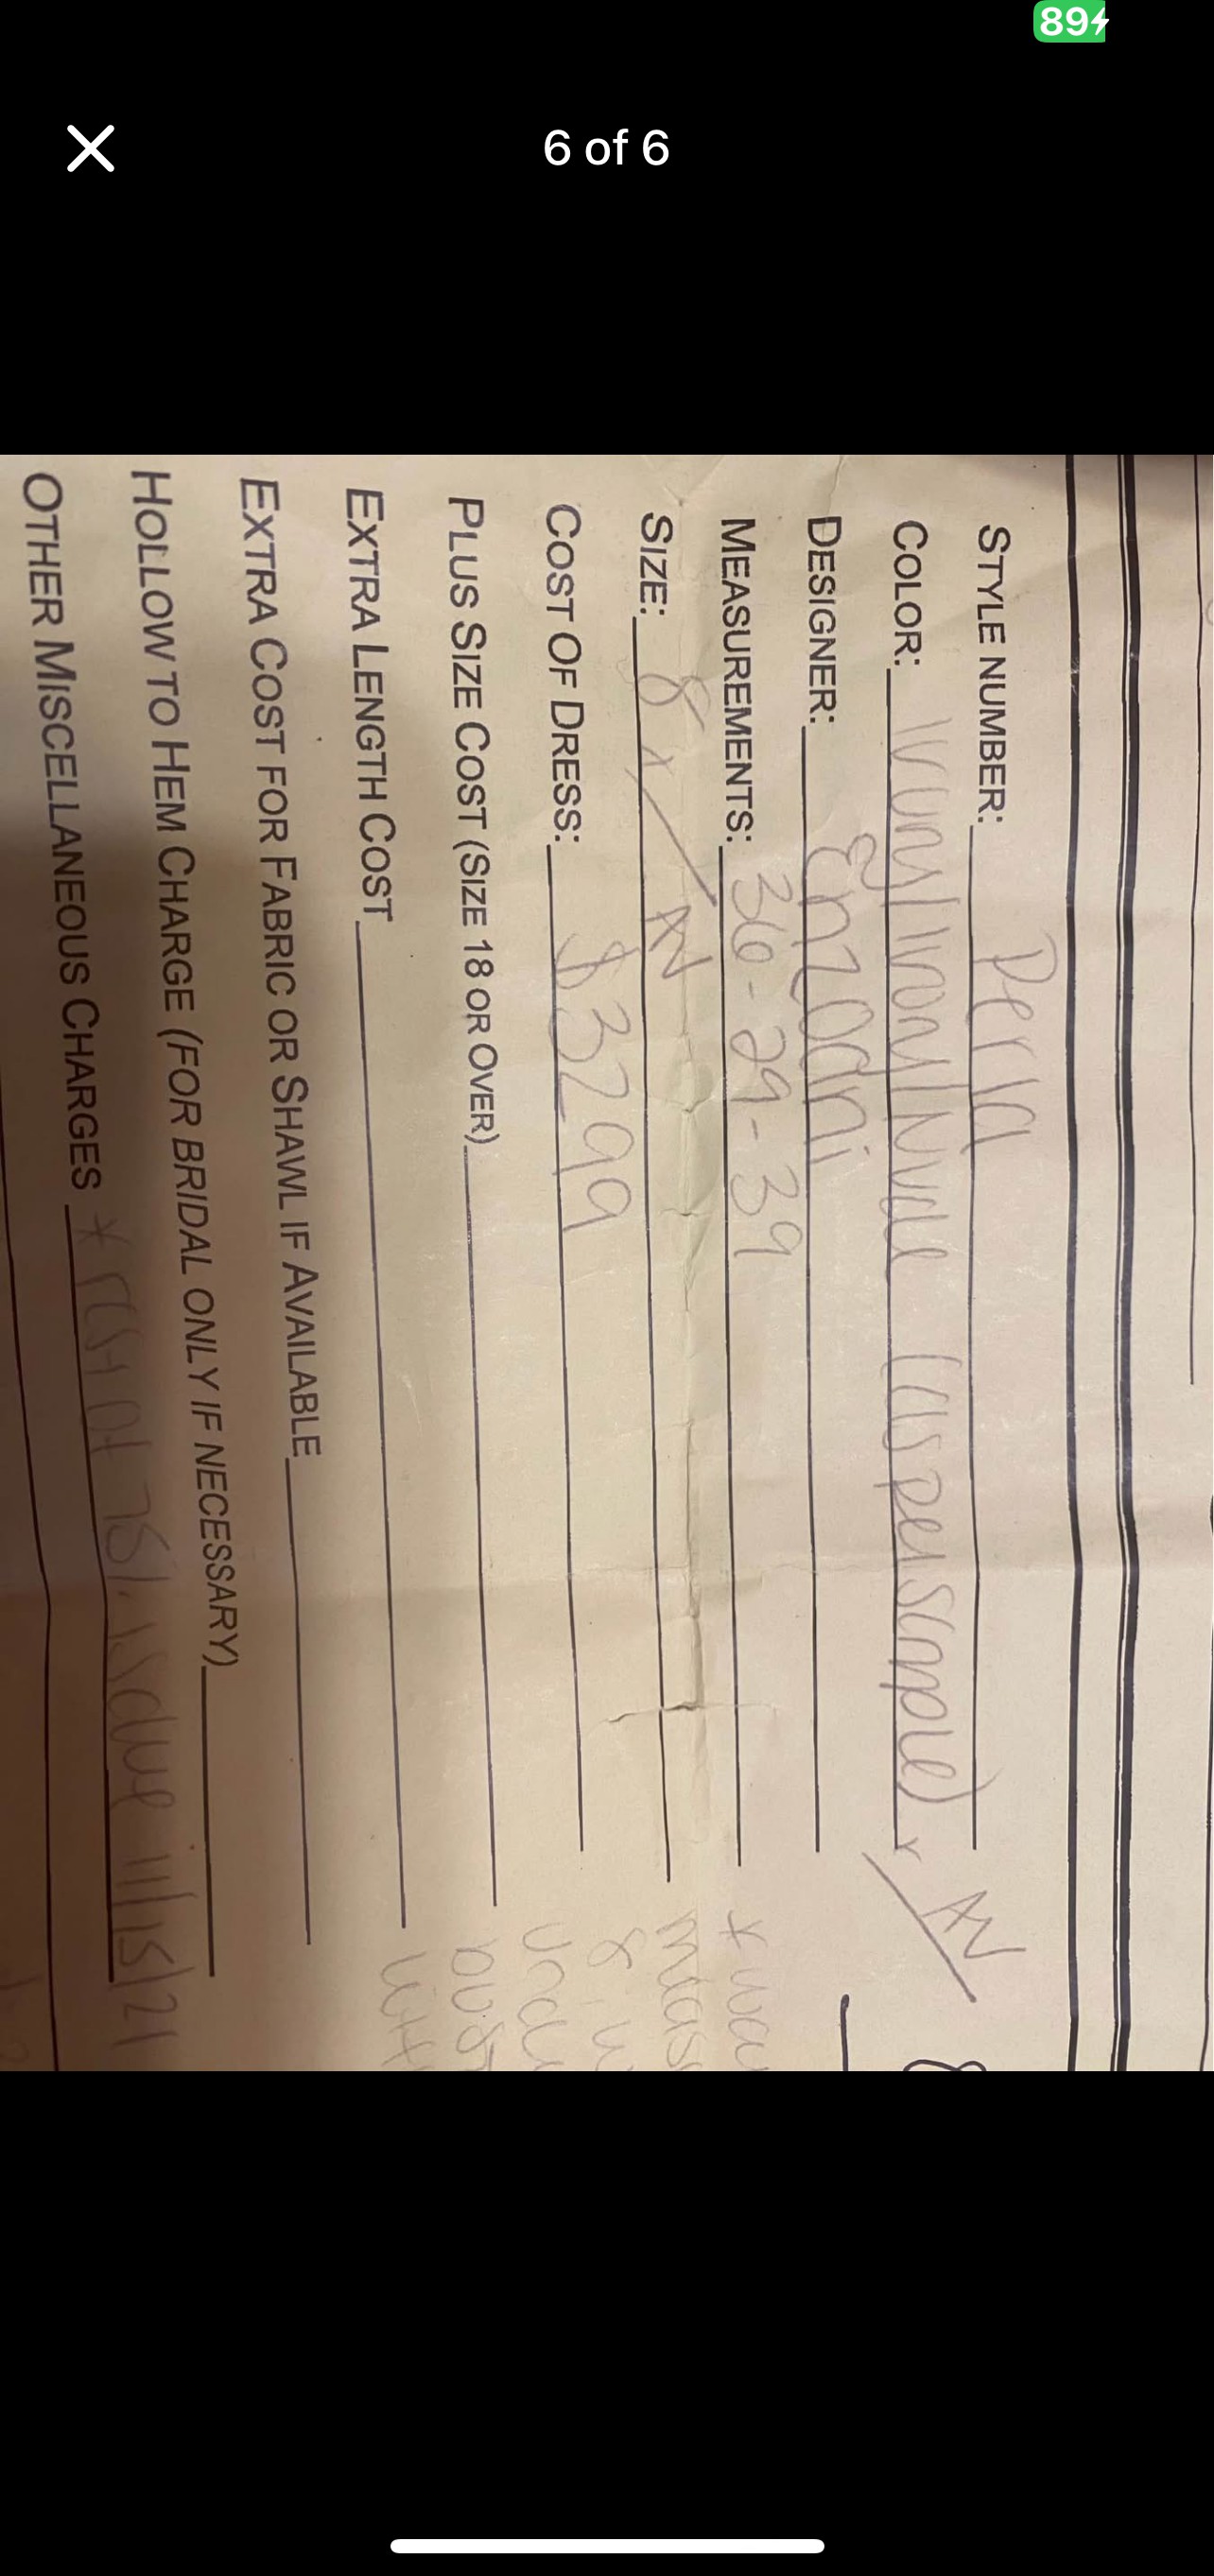 89
6 of 6
STYLE NUMBER: Perla
COLOR: Ivory/Ivory/Nude (as per sample) x AN
DESIGNER: Enzoani
MEASUREMENTS: 36-29-39
SIZE: 8 x AN
COST OF DRESS: $3299
PLUS SIZE COST (SIZE 18 OR OVER)
EXTRA LENGTH COST
EXTRA COST FOR FABRIC OR SHAWL IF AVAILABLE
HOLLOW TO HEM CHARGE (FOR BRIDAL ONLY IF NECESSARY)
OTHER MISCELLANEOUS CHARGES * rest of is due 11/15/21